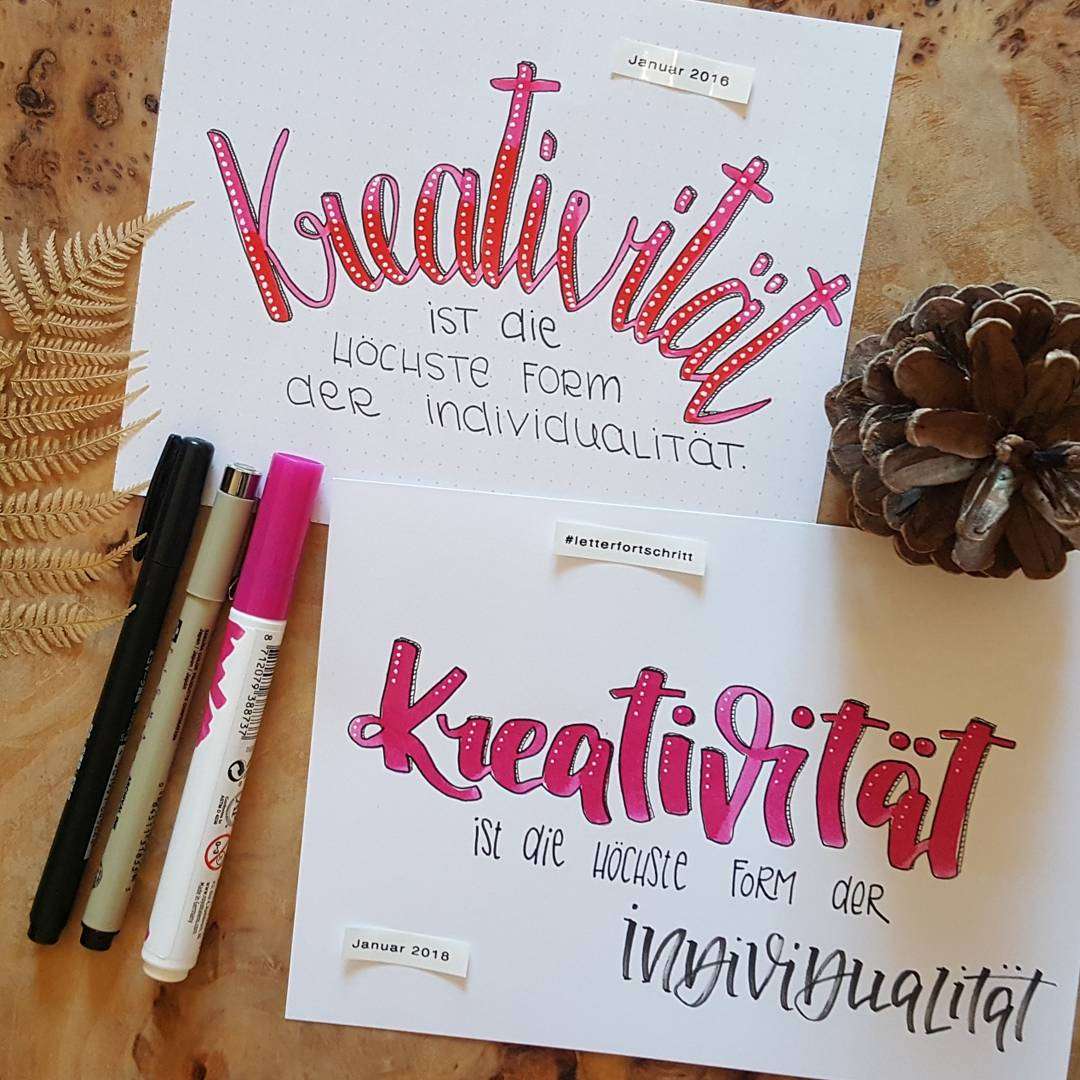 Januar 2016
Kreativität
ist die
HÖCHSTE FORM
DER individuaLITÄT.
#letterfortschritt
Kreativität
ist die HÖCHSTE FORM DER
individualität
Januar 2018
8 712079 388737